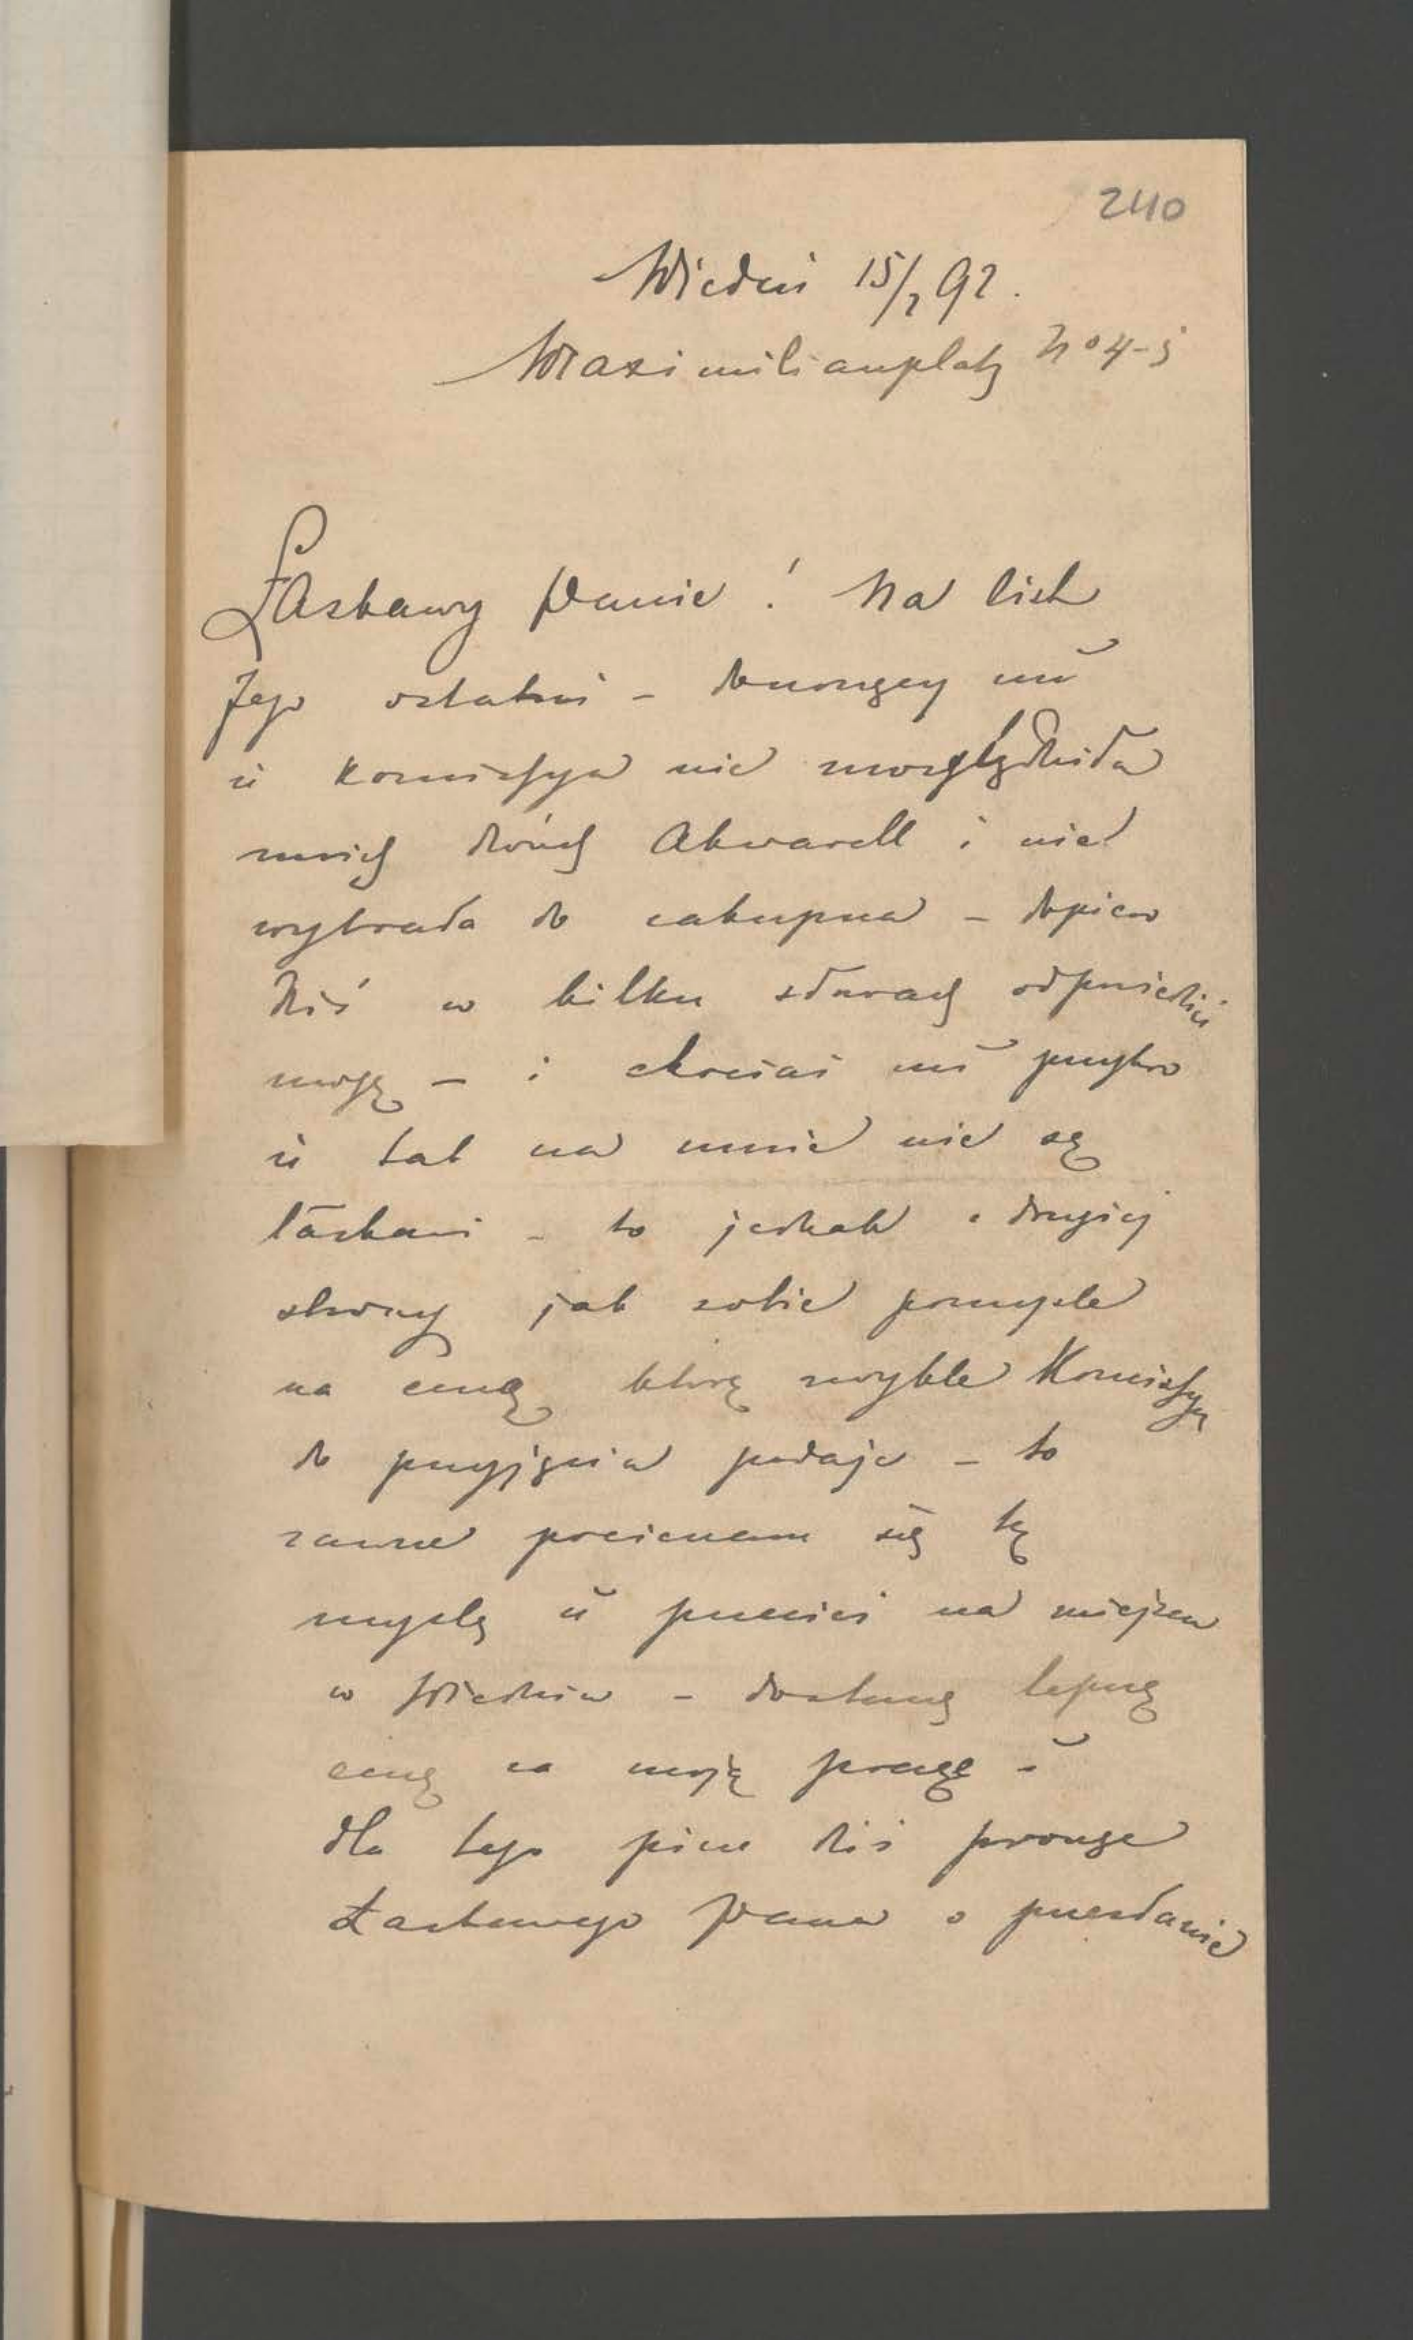 240
Wiedeń 15/2 92.
Maximilianplatz No 4-5
Łaskawy Panie! Na list
Jego ostatni - donoszący mi
iż Komissya nie uwzględniła
moich dwóch Akwarell i nie
wybrała do zakupna - dopiero
dziś w kilku słowach odpowiedzieć
mogę - i chociaż mi przykro
iż tak na mnie nie są
łaskawi - to jednak z drugiej
strony jak sobie pomyśle
na cenę którą zwykle Komissya
do przyjęcia podaje - to
zawsze pocieszam się tą
myślą iż przecież na miejscu
w Wiedniu - dostanę lepszą
cenę za moją pracę -
dla tego pisze dziś prosząc
Łaskawego Pana o przesłanie